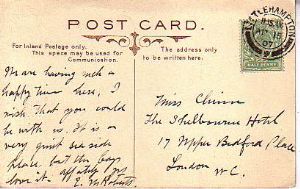 POST CARD.
For Inland Postage only.
This space may be used for
Communication.
The address only
to be written here.
LITTLEHAMPTON
07
HALFPENNY
We are having such a
happy time here, I
wish that you could
be with us. It is a
very quiet sea side
place, but the boys
love it. affately yrs
E.
Miss
The Shelbourne Hotel
17 Upper Bedford Place
London
W.C.